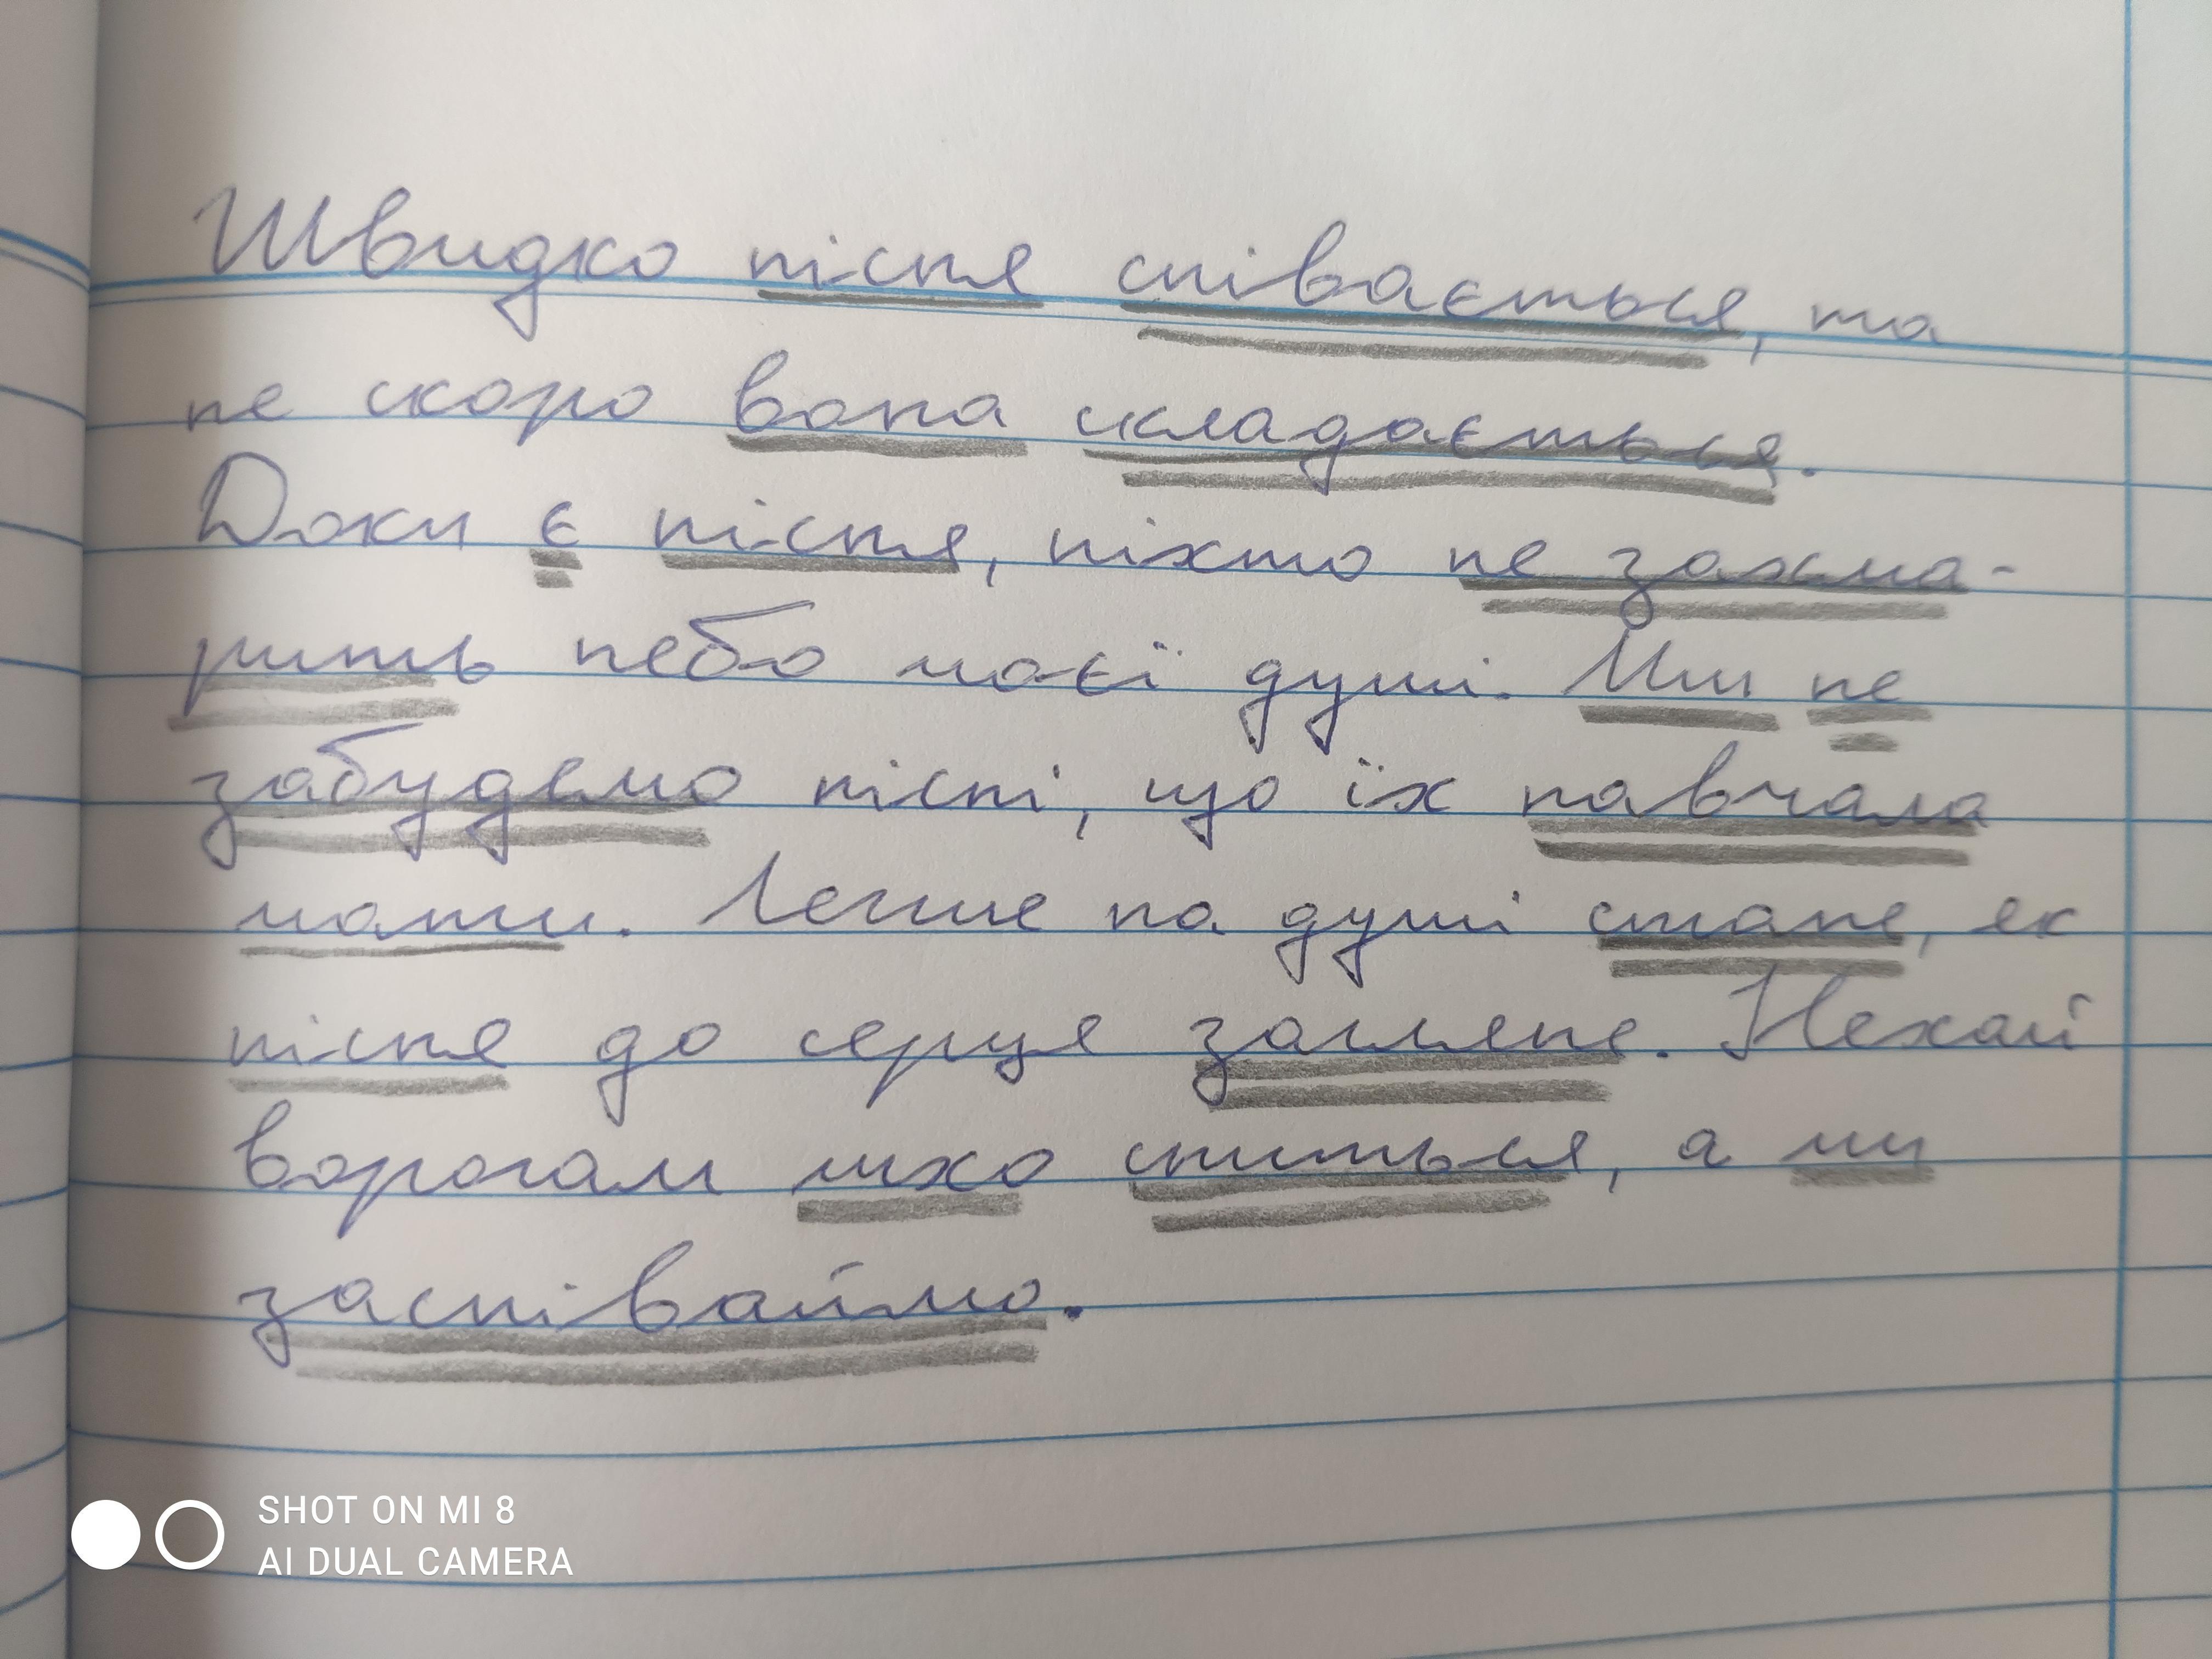 Швидко пісня співається, та
не скоро вона складається.
Доки є пісня, ніхто не захма-
рить небо моєї душі. Ми не
забудемо пісні, що їх навчала
мати. Легше на душі стане, як
пісня до серця загляне. Нехай
ворогам лихо сниться, а ми
заспіваймо.
SHOT ON MI 8
AI DUAL CAMERA